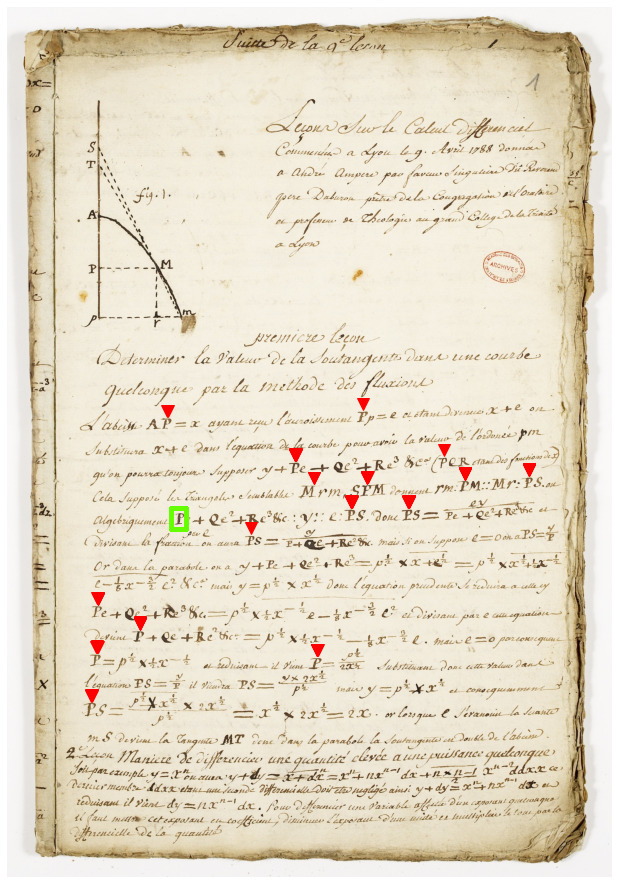 Suitte de la 9e lecon
1
1
Leçons Sur le Calcul differenciel
Commencées a Lyon le 9. Avril 1788 données
a André Ampere par faveur Singuliere Du Reverend
pere Daburon prêtre de la Congregation de l'Oratoire
et professeur de Theologie au grand College de la Trinité
a Lyon
ARCHIVES
S
T
fig. 1.
A
P
M
p
r
m
premiere leçon
Determiner la Valeur de la Soutangente dans une courbe
quelconque par la methode des fluxions
L'abcisse AP = x ayant reçu l'acroissement Pp = e et etant devenue x + e on
Substituera x + e dans l'equation de la courbe pour avoir la valeur de l'ordonée pm
qu'on pourra toujours Supposer y + Pe + Qe² + Re³ &ca (PQR etant des fonctions de x)
Cela Supposé les Triangles Semblables Mrm, SPM donnent rm: PM:: Mr: PS. ou
Algebriquement P + Qe² + Re³ &c : y :: e : PS. donc PS = ey / Pe + Qe² + Re³ &c et
divisant la fraction par e on aura PS = y / P + Qe + Re² &c. mais Si on Suppose e = 0 on a PS = y/P
Or dans la parabole on a y + Pe + Qe² + Re³ &c
mais y = p½ x x½ donc l'equation precedente Se reduira a celle cy
Pe + Qe² + Re³ &c. = p½ x ½ x-½ e - ⅛ x-3/2 e² et divisant par e cette equation
devient P + Qe + Re² &c = p½ x ½ x-½ - ⅛ x-3/2 e. mais e = 0 par consequent
P = p½ x ½ x-½ et reduisant il vient P = p½ / 2x½ Substituant donc cette valeur dans
l'équation PS = y/P il viendra PS = y x 2x½ / p½ mais y = p½ x x½ et consequemment
PS = p½ x x½ / p½ x 2x½ = x½ x 2x½ = 2x. or lorsque e S'evanouit la Secante
mS devient la Tangente MT donc dans la parabole la Soutangente est double de l'abcisse.
2e Leçon Maniere de differencier une quantité elevée a une puissance quelconque
Soit par exemple y = xn on aura y + dy = x + dx = xn + nxn-1 dx + n x n-1 xn-2 ddxx ce
dernier membre ddxx etant une seconde differentielle doit etre negligé ainsi y + dy = xn + nxn-1 dx et
reduisant il vient dy = nxn-1 dx. Pour differencier une Variable affectée d'un exposant quelconque
il faut mettre cet exposant en coefficient, diminuer l'exposant d'une unité et multiplier le tout par la
differentielle de la quantité